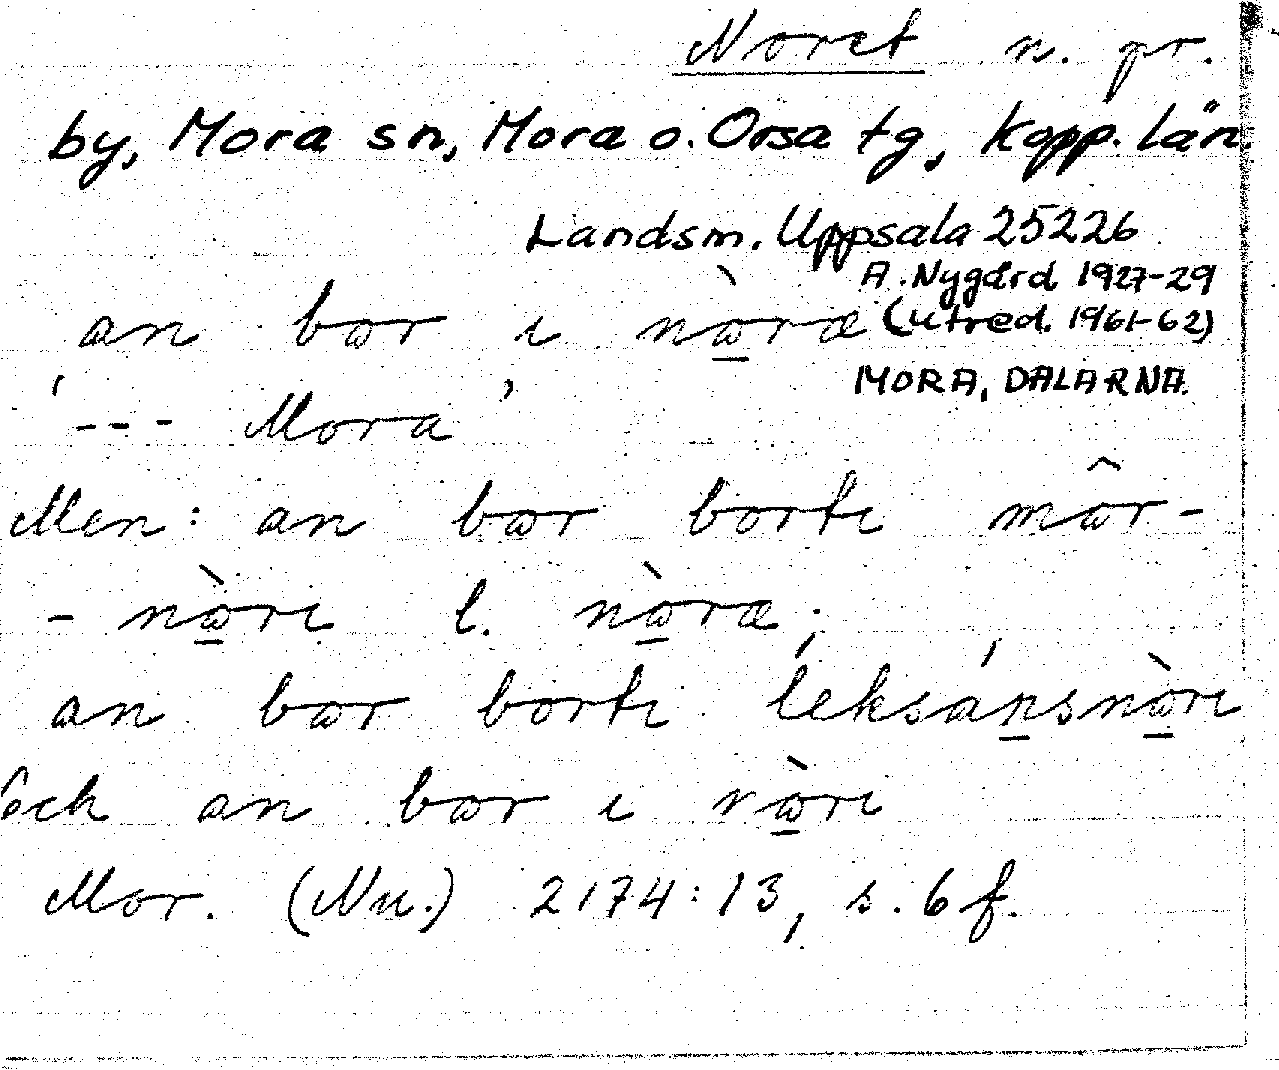 Noret n. pr.
by, Mora sn, Mora o. Orsa tg, Kopp. län.
Landsm. Uppsala 25226
A. Nygård 1927-29
(utred. 1961-62)
MORA, DALARNA.
an bor i nòræ
' --- Mora'
Men: an bor borti môr-
- nòri l. nòræ;
an bor borti leksánsnòri
Ock an bor i nòri
Mor. (Nu.) 2174:13, s. 6 f.